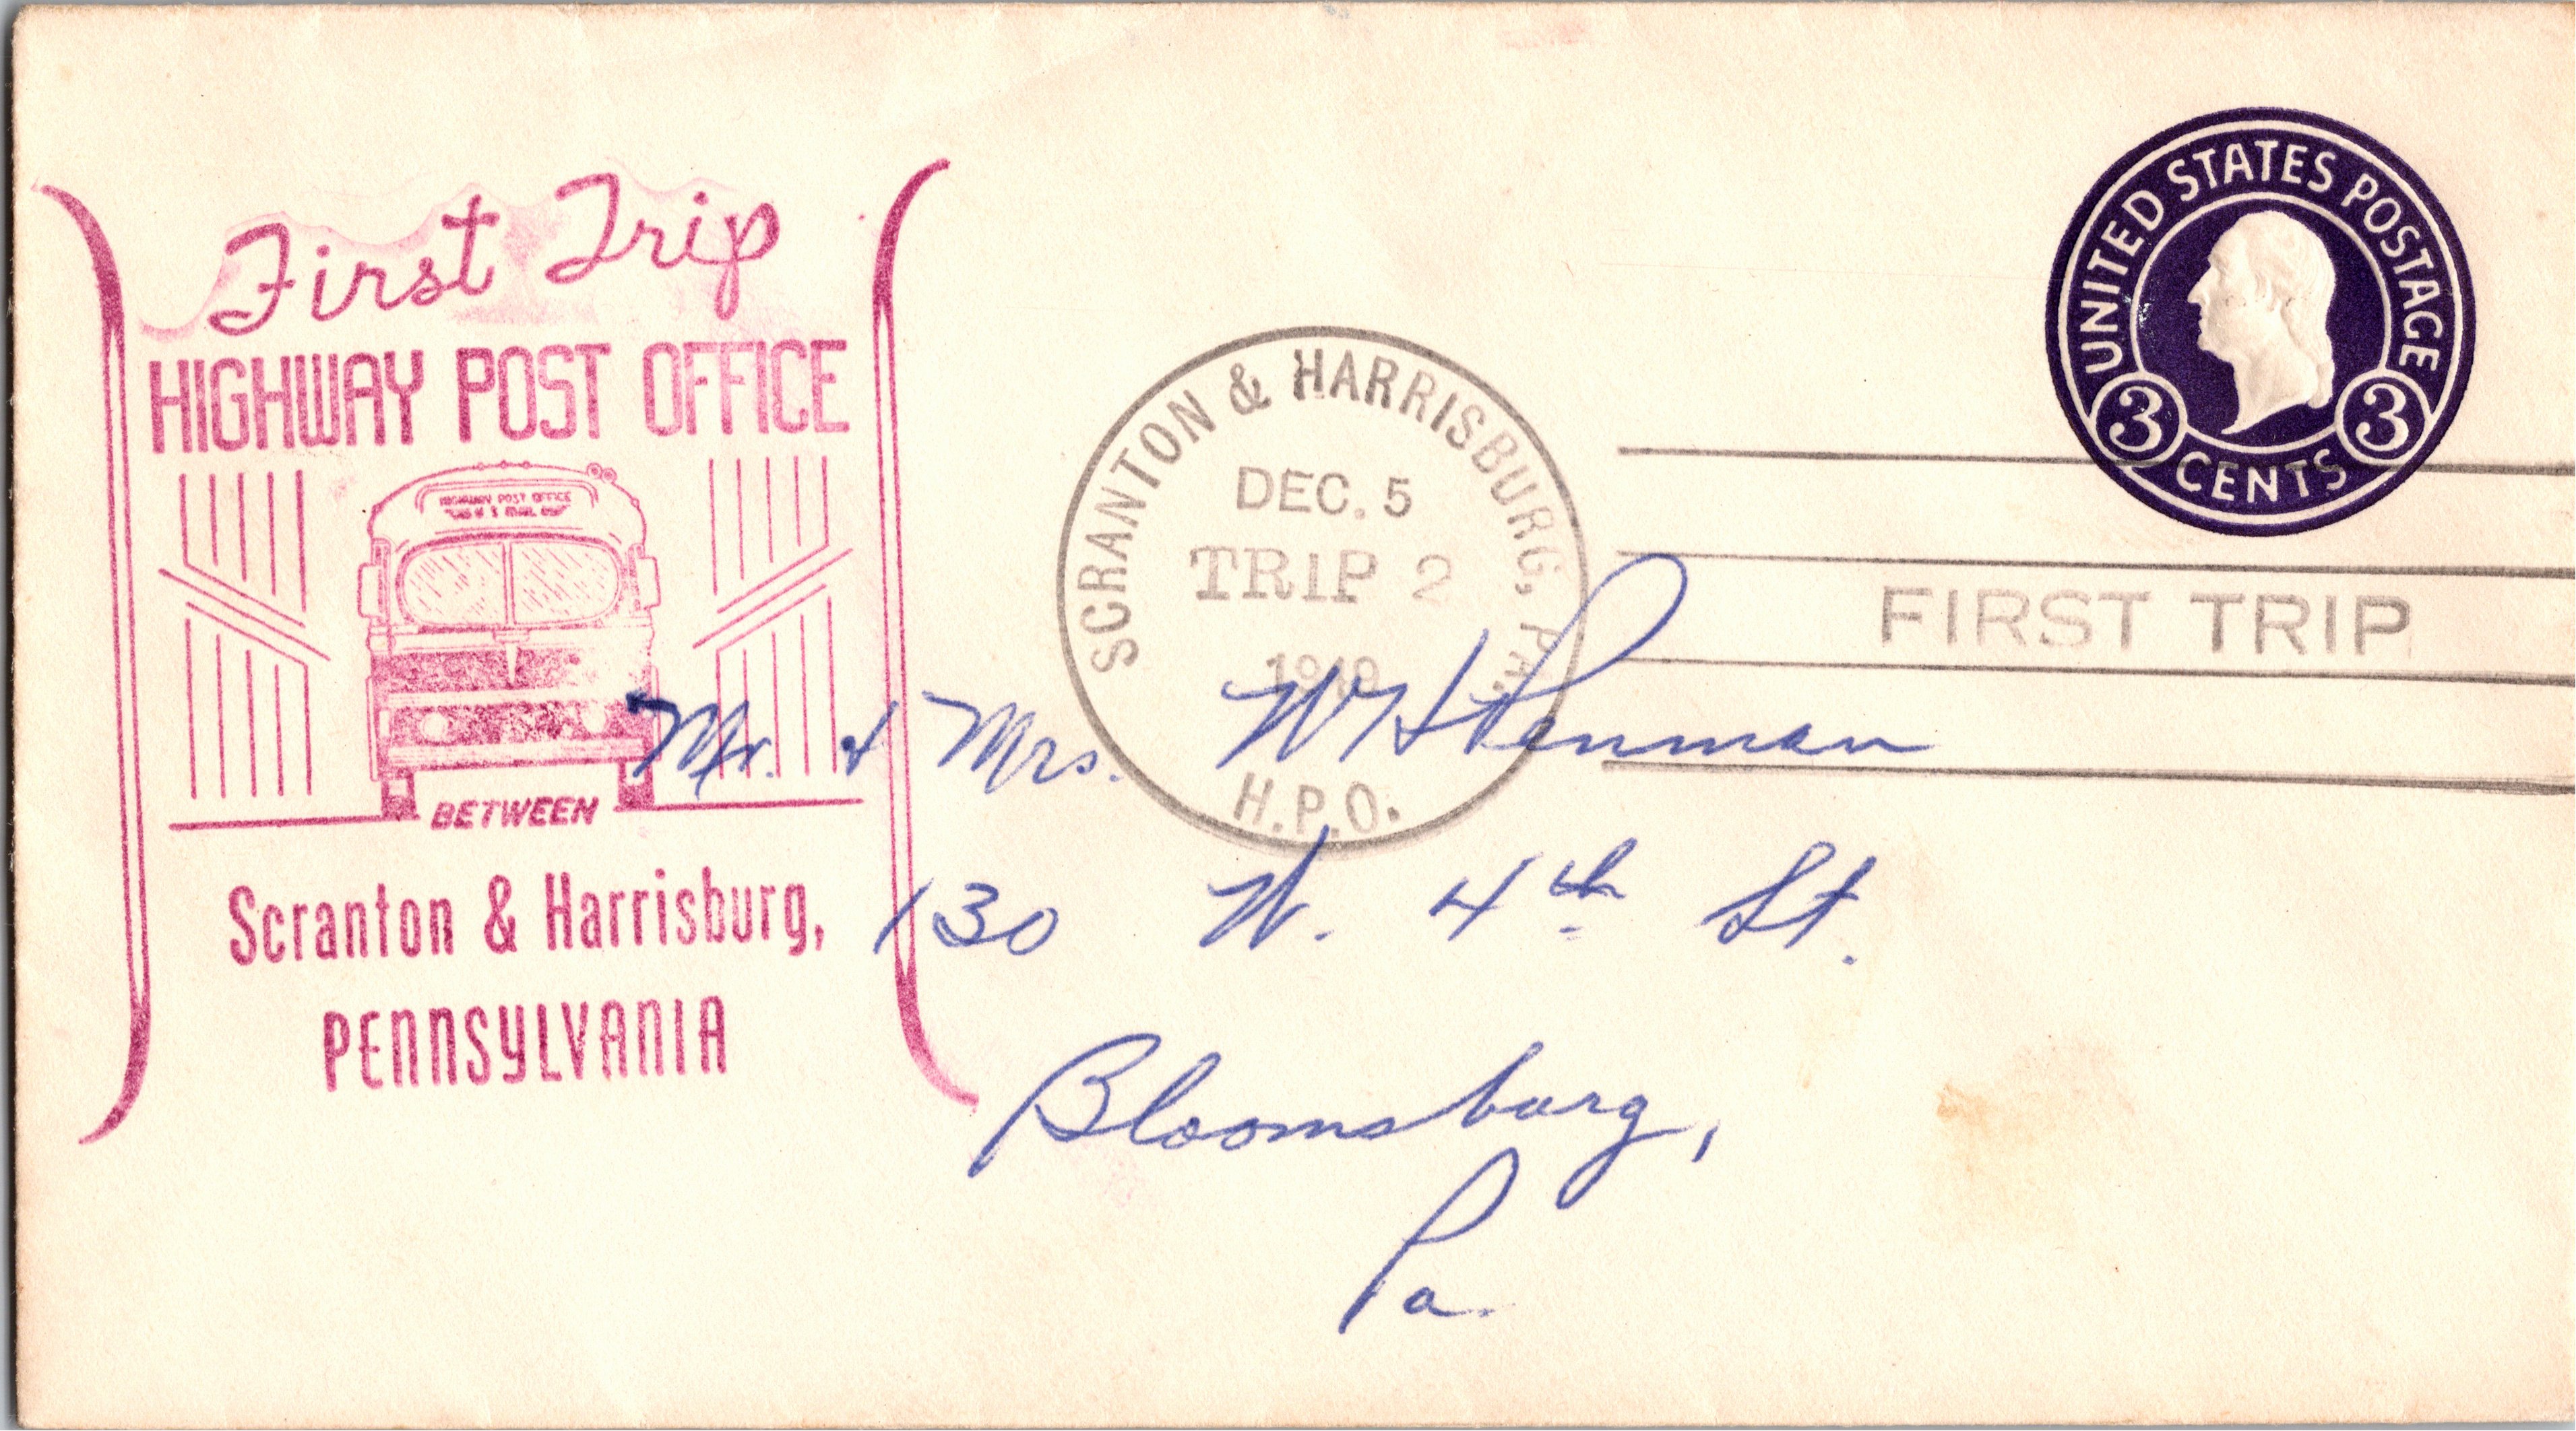 First Trip
HIGHWAY POST OFFICE
HIGHWAY POST OFFICE
U S MAIL
BETWEEN
Scranton & Harrisburg,
PENNSYLVANIA
SCRANTON & HARRISBURG, PA.
DEC. 5
TRIP 2
1949
H.P.O.
UNITED STATES POSTAGE
3 CENTS 3
FIRST TRIP
Mr. & Mrs. W H Penman
130 W. 4th St.
Bloomsburg,
Pa.